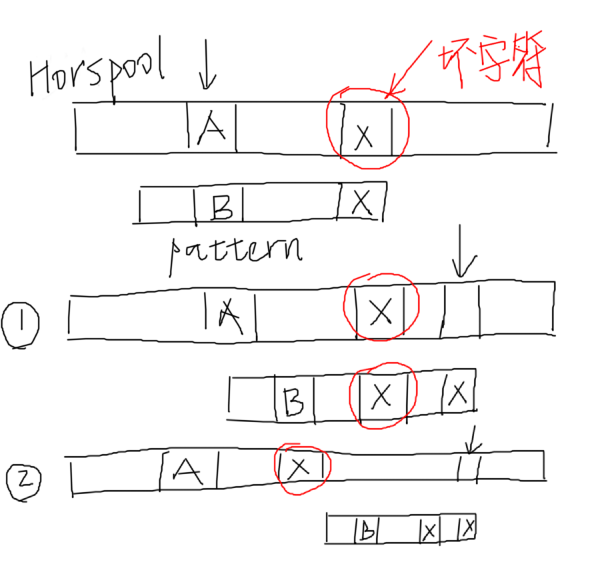 Horspool 坏字符
A X
B X
pattern
① A X
B X X
② A X
B X X